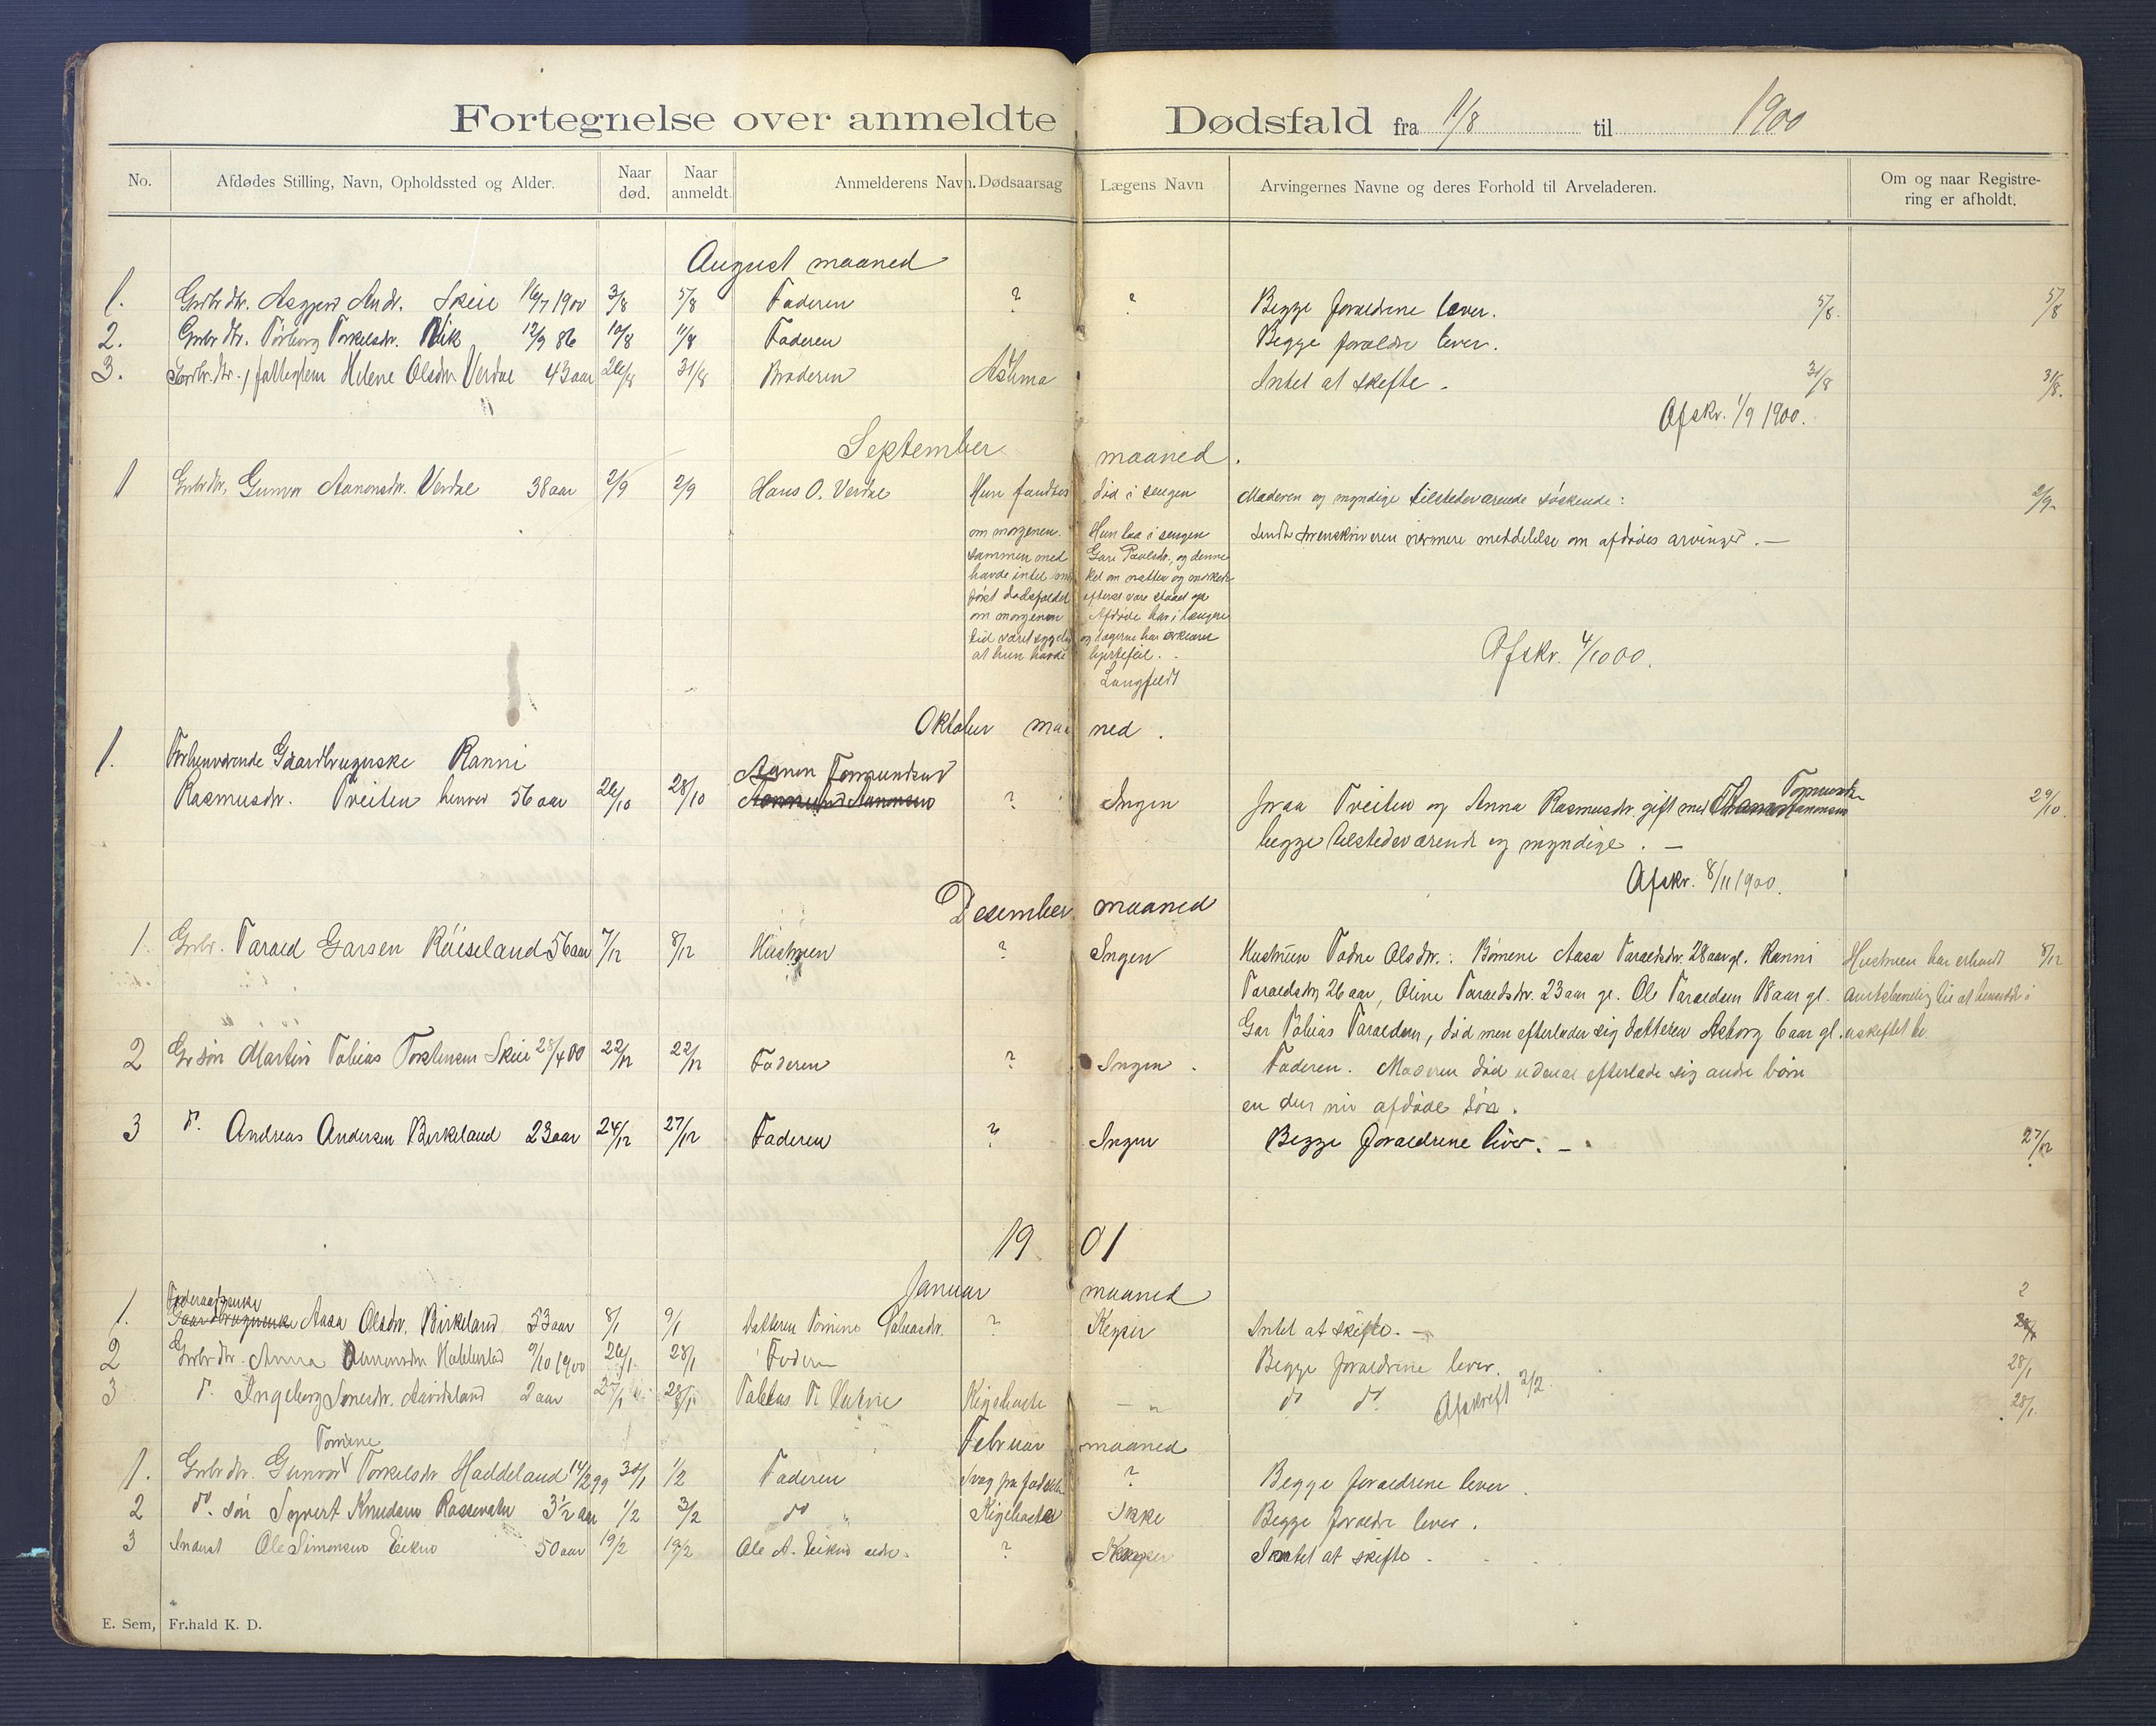 Fortegnelse over anmeldte Dødsfald fra 1/8 til 1900
No. Afdødes Stilling, Navn, Opholdssted og Alder. Naar død. Naar anmeldt. Anmelderens Navn. Dødsaarsag Lægens Navn Arvingernes Navne og deres Forhold til Arveladeren. Om og naar Registrering er afholdt.
August maaned
1. Grbr dtr. Asgjerd Andr. Skeie 16/7 1900 3/8 5/8 Faderen ? ? Begge forældrene lever. 5/8. 5/8
2. Grbr dtr. Torborg Torkelsdr. Vik 12/9 86 10/8 11/8 Faderen Begge forældre lever.
3. Helene Olsdr. Verdal 43 aar 26/8 31/8 Broderen Asthma Intet at skifte. 31/8 31/8.
Afskr. 1/9 1900.
September maaned.
1 Grbr dtr. Gunvor Aanonsdr. Verdal 38 aar 2/9 2/9 Hans O. Verdal Hun fandtes død i sengen Moderen og myndige tilstedeværende søskende: 2/9
om morgenen. Hun laa i sengen Sendt skriveren nærmere meddelelse om afdødes arvinger. —
sammen med Guri Paulsdr., og denne
havde intet om natten og
først dødsfaldet efterat være staaet op
om morgenen Afdøde har i længere
tid været og lægerne har erklæret
at hun havde hjertefeil.
Langfeldt
Afskr. 4/10 00.
Oktober maaned.
1. Forhenværende Gaardbrugerske Ranni Aanon Tormundsen
Rasmusdr. Tveiten 56 aar 26/10 28/10 ? Ingen Tveiten og Anna Rasmusdr. gift med 29/10.
begge tilstedeværende og myndige. —
Afskr. 8/11 1900.
Desember maaned
1. Grbr. Tarald Garsen Røiseland 56 aar 7/12 8/12 Hustruen ? Ingen Hustruen Todne Olsdr.: Børnene Aasa Taraldsdr. 28 aar gl. Ranni Hustruen har erholdt 8/12
Taraldsdr 26 aar, Oline Taraldsdr. 23 aar gl. Ole Taraldsen 18 aar gl. til at i
Gar Tobias Taraldsen, død men efterlader sig datteren Asborg 6 aar gl. uskiftet bo
2 Gr søn Martin Tobias Torstensen Skeie 28/4 00 22/12 22/12 Faderen ? Ingen. Faderen. Moderen død udenat efterlade sig andre børn
en den nu afdøde søn.
3 do. Andreas Andersen Birkeland 23 aar 24/12 27/12 Faderen ? Ingen Begge forældrene lever. — 27/12
1901
Januar maaned
1. Aasa Olsdr. Birkeland 53 aar 8/1 9/1 Datteren Tomine Tobiasdr. ? Keyser Intet at skifte. —
2 Grbr dtr. Anna 9/10 1900 26/1 28/1 Faderen Begge forældrene lever. 28/1
3 do. Ingeborg 2 aar 27/1 28/1 Kighoste — „ do do Afskrift 2/2. 28/1.
Februar maaned
Tomine
1. Grbr dtr. Gunvor Torkelsdr Haddeland 14/2 99 30/1 1/2 Faderen Svag fra fødselen ? Begge forældrene lever.
2 do. søn Syvert Knudsen Rossevatn 3 1/2 aar 1/2 3/2 do „ Kighoste Ikke Begge forældre lever.
3 Inderst Ole Simonsen Eiken 50 aar 19/2 19/2 Ole A. Eiken ? Keyser Intet at skifte.
E. Sem, Fr.hald K. D.